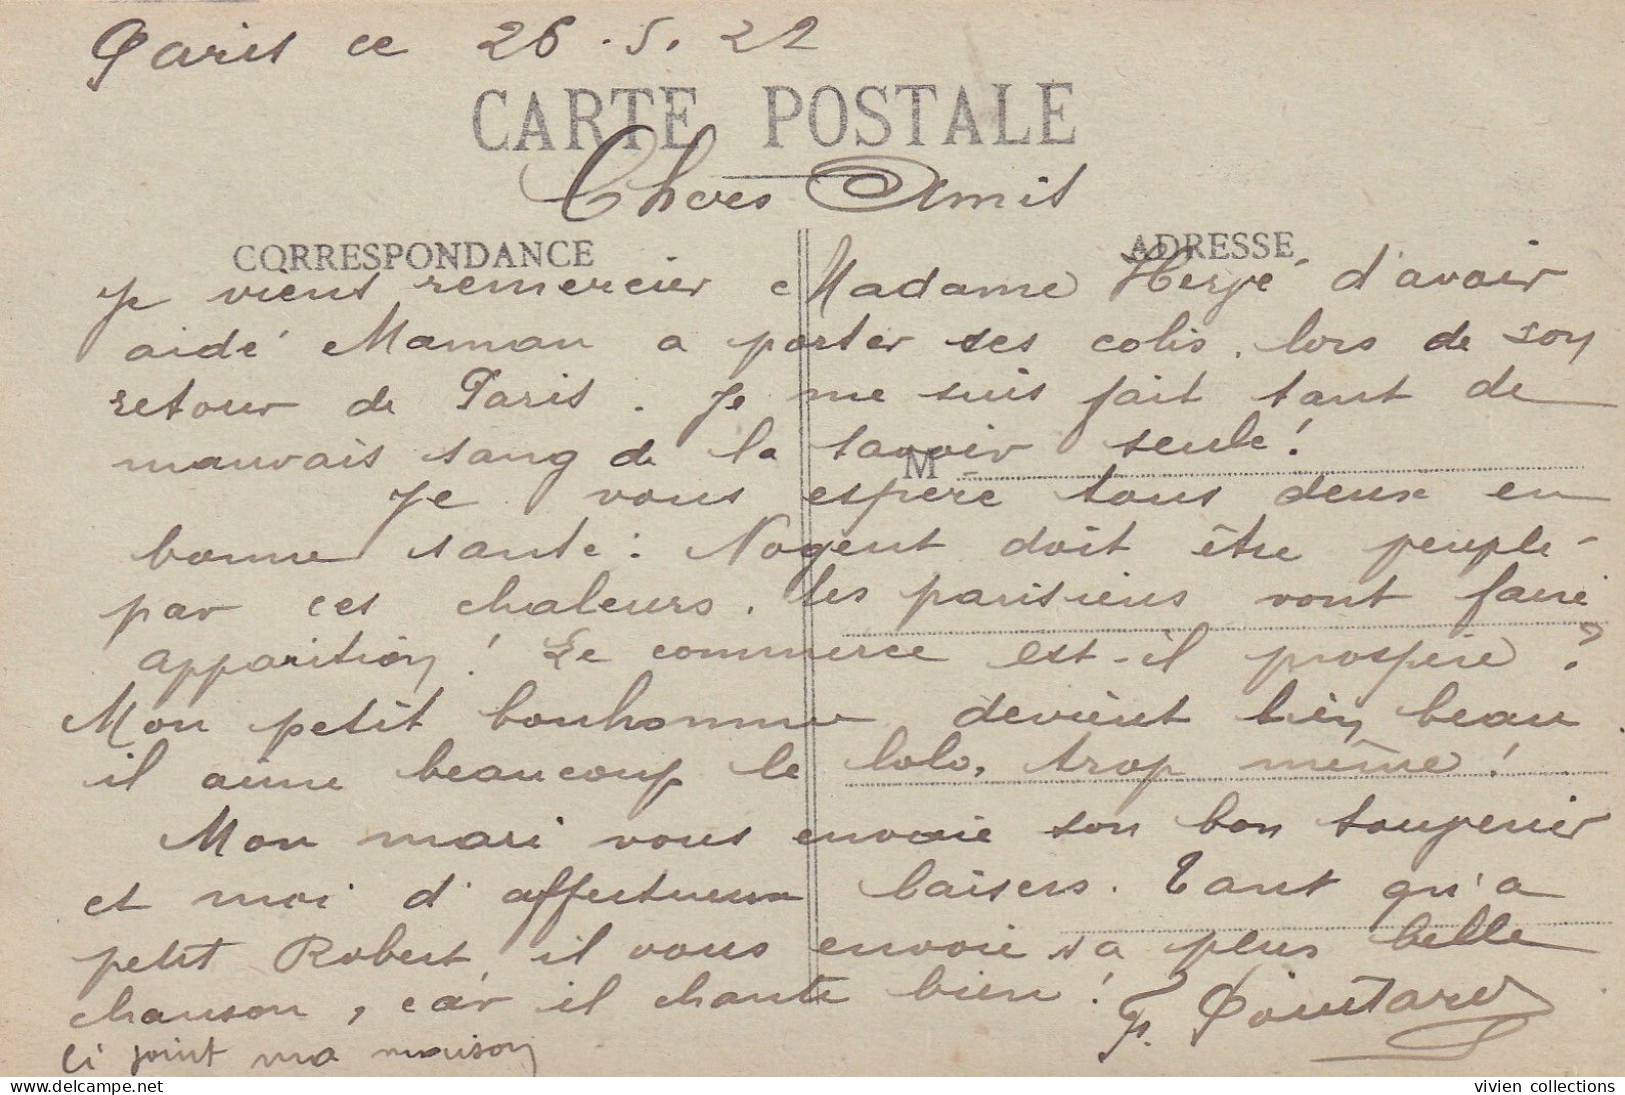 Paris ce 26.5.22
CARTE POSTALE
Chers Amis
CORRESPONDANCE
ADRESSE
Je viens remercier Madame d'avoir
aidé Maman a porter ses colis, lors de son
retour de Paris. Je me suis fait tant de
mauvais sang de la savoir seule!
M
Je vous espère tous deux en
bonne santé: Nogent doit être peuplé
par ces chaleurs. les parisiens vont faire
apparition! Le commerce est-il prospère?
Mon petit bonhomme devient bien beau
il aime beaucoup le lolo, trop même!
Mon mari vous envoie son bon souvenir
et moi d'affectueux baisers. Tant qu'a
petit Robert, il vous envoie sa plus belle
chanson, car il chante bien!
ci joint ma maison
vivien collections